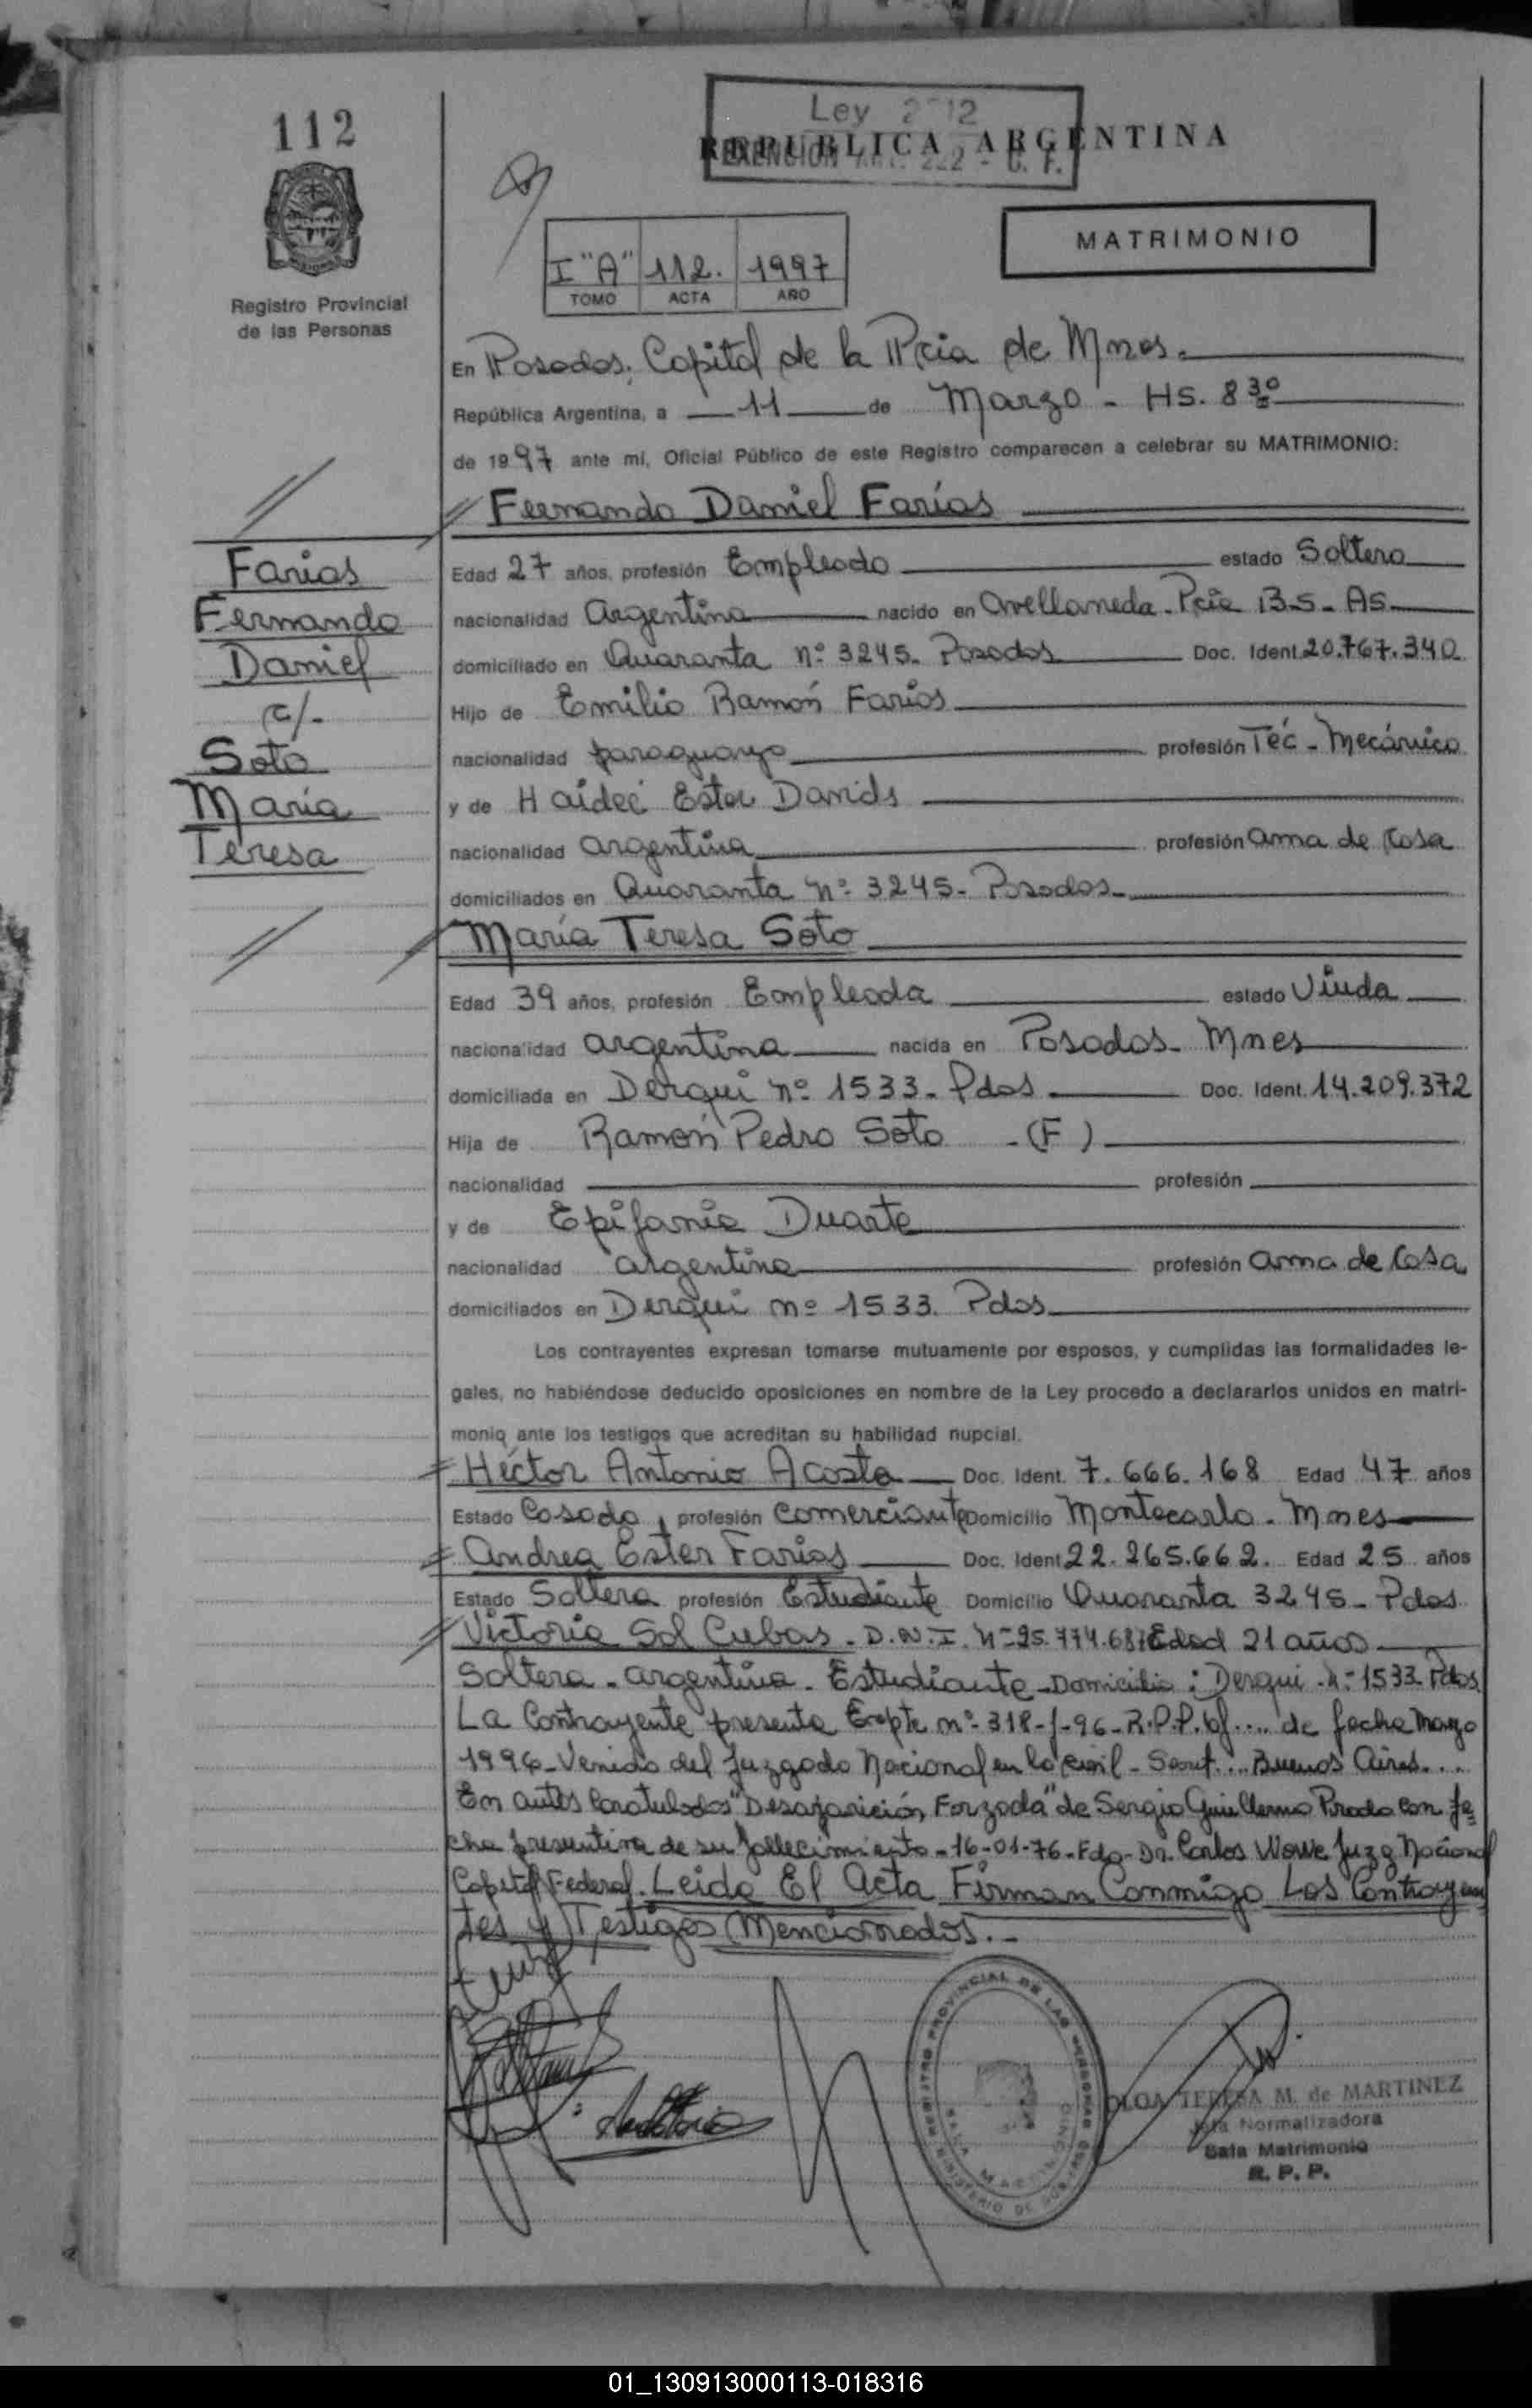 112
Registro Provincial
de las Personas
Ley
REPUBLICA ARGENTINA
MATRIMONIO
I "A" 112. 1997
TOMO ACTA AÑO
En Posadas, Capital de la Pcia de Mnes.
República Argentina, a 11 de Marzo - HS. 8 30
de 1997 ante mí, Oficial Público de este Registro comparecen a celebrar su MATRIMONIO:
Fernando Daniel Farías
Farias
Fernando
Daniel
c/-
Soto
María
Teresa
Edad 27 años, profesión Empleado estado Soltero
nacionalidad Argentina nacido en Avellaneda - Pcia BS - AS
domiciliado en Quaranta nº 3245. Posadas Doc. Ident. 20.767.340
Hijo de Emilio Ramón Farías
nacionalidad paraguayo profesión Téc - Mecánico
y de Haideé Ester Davids
nacionalidad argentina profesión ama de casa
domiciliados en Quaranta nº 3245 - Posadas -
María Teresa Soto
Edad 39 años, profesión Empleada estado Viuda
nacionalidad argentina nacida en Posadas - Mnes
domiciliada en Derqui nº 1533 - Pdas Doc. Ident. 14.209.372
Hija de Ramón Pedro Soto - (F)
nacionalidad profesión
y de Epifania Duarte
nacionalidad argentina profesión ama de casa
domiciliados en Derqui nº 1533. Pdas
Los contrayentes expresan tomarse mutuamente por esposos, y cumplidas las formalidades le-
gales, no habiéndose deducido oposiciones en nombre de la Ley procedo a declararlos unidos en matri-
monio ante los testigos que acreditan su habilidad nupcial.
Héctor Antonio Acosta Doc. Ident. 7.666.168 Edad 47 años
Estado Casado, profesión comerciante Domicilio Montecarlo - Mnes
Andrea Ester Farias Doc. Ident. 22.265.662. Edad 25 años
Estado Soltera profesión Estudiante Domicilio Quaranta 3245 - Pdas
Victoria Sol Cubas - D.N.I. Nº Edad 21 años
Soltera - argentina - Estudiante - Domicilio: Derqui Nº 1533 Pdas
La Contrayente presenta Expte nº 318-J-96 - R.P.P. de fecha Marzo
1996 - Venido del Juzgado Nacional en lo civil - Buenos Aires....
En autos Caratulados "Desaparición Forzada" de Sergio Guillermo Prado con fe-
cha presuntiva de su fallecimiento - 16-01-76 - Fdo - Dr. Carlos Juzg Nacional
Capital Federal. Leída El Acta Firman Conmigo Los Contrayen
tes y Testigos Mencionados. -
REGISTRO PROVINCIAL DE LAS PERSONAS
TERESA M. de MARTINEZ
Jefa Normalizadora
Sala Matrimonio
R. P. P.
01_130913000113-018316